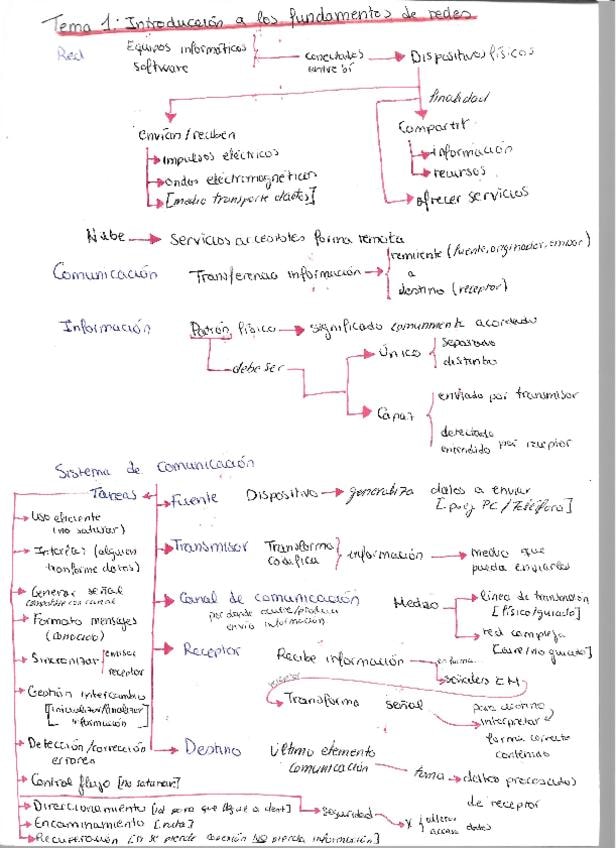 Tema 1: Introducción a los fundamentos de redes
Red
Equipos informáticos
software
conectados
entre sí
Dispositivos físicos
finalidad
envían/reciben
impulsos eléctricos
ondas electromagnéticas
[medio transporte datos]
Compartir
información
recursos
ofrecer servicios
Nube
Servicios accesibles forma remota
Comunicación
Transferencia información
remitente (fuente, originador, emisor)
a
destino (receptor)
Información
Patrón físico
significado comunmente acordado
debe ser
único
separado
distinto
Capaz
enviado por transmisor
detectado
entendido por receptor
Sistema de comunicación
Tareas
Uso eficiente
(no saturar)
Interfaz (alguien
tranforme datos)
Generar señal
Formato mensajes
(conocido)
Sincronizar
emisor
receptor
Gestión intercambio
[inicializar/finalizar
+ formación
Detección/corrección
errores
Control flujo [no saturar]
Direccionamiento [id para que llegue a dest]
Encaminamiento [ruta]
Recuperación [si se pierde conexión NO pierda información]
seguridad
alterar
acceso datos
Fuente
Dispositivo
generaliza datos a enviar
[p.ej PC/Teléfono]
Transmisor
Transforma
codifica
información
medio que
pueda enviarlos
Canal de comunicación
por donde ocurre/produce
envío información
Medio
línea de transmisión
[físico/guiado]
red compleja
[aire/no guiado]
Receptor
Recibe información
en forma
señales EM
receptor
Transforma señal
para destino
interpretar
forma correcta
contenido
Destino
Último elemento
comunicación
toma
datos procesados
de receptor